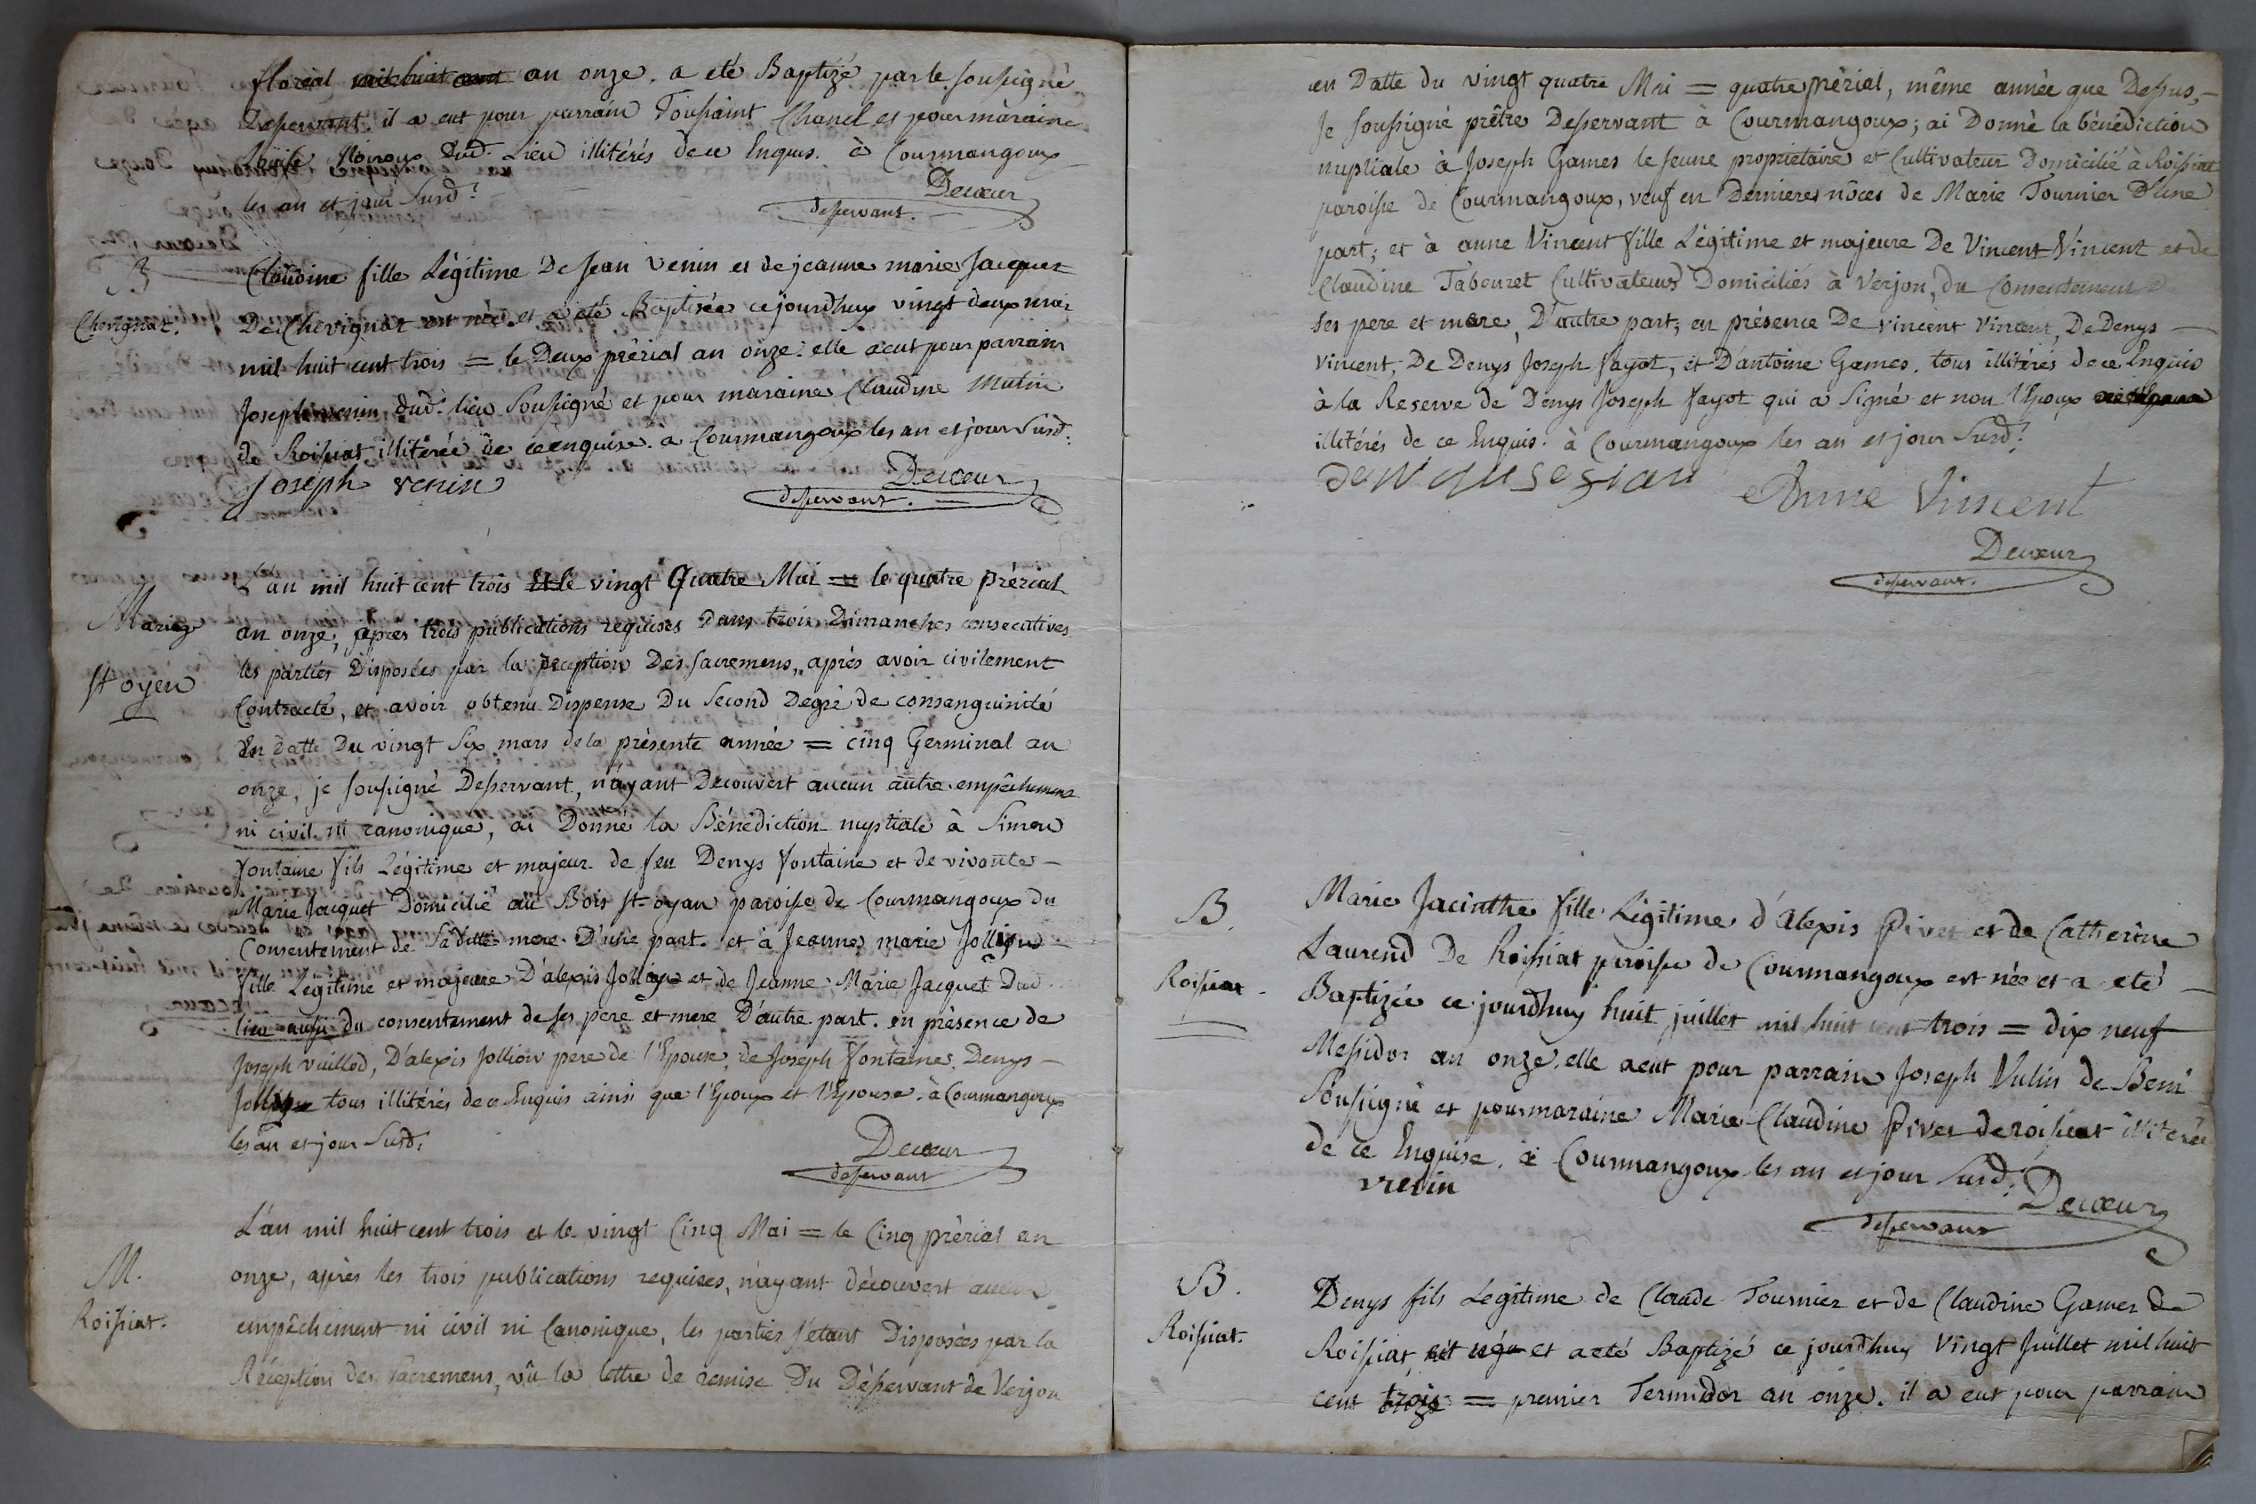 floréal mil huit cent an onze. a eté Baptizé par le soussigné
Desservant. il a eut pour parrain Toussaint Chanel et pour maraine
Louise Noiroux Dud. Lieu illitérés de ce Enquis. à Courmangoux
les an et jour susd.
Decœur
desservant.
B
Chevignat.
Claudine fille Légitime De Jean Venin et de jeanne marie Jacquet
De Chevignat est née et a été Baptisée ce jourdhuy vingt deux mai
mil huit cent trois = le Deux prérial an onze. elle a eut pour parrain
Joseph venin dud. lieu soussigné et pour maraine Claudine Mutin
de Roissiat illitérée de ce enquise. a Courmangoux les an et jour susd.
Joseph venin
Decœur
desservant.
Mariage
St oyen
L'an mil huit cent trois Et le vingt Quatre Mai = le quatre prérial
an onze, apres trois publications requises dans trois Dimanches consecutives
les parties Disposées par la reception Des sacremens, après avoir civilement
Contracté, et avoir obtenu Dispense Du second Degré de consanguinité
En datte Du vingt six mars de la présente année = cinq Germinal an
onze, je soussigné Desservant, n'ayant Decouvert aucun autre empêchement
ni civil ni canonique, ai Donné la Bénédiction nuptiale à Simon
Fontaine fils Légitime et majeur de feu Denys Fontaine et de vivante
Marie Jacquet Domicilié au Bois St oyan paroisse de Courmangoux du
Consentement de sa ditte mere D'une part. et à Jeanne marie Jollion
Fille Légitime et majeure D'alexis Jollion et de Jeanne Marie Jacquet Dud
lieu aussi du consentement de ses pere et mere D'autre part. en présence de
Joseph vuillod, D'alexis Jollion pere de l'Epouse, de Joseph Fontaine, Denys
Jollion tous illitérés de ce Enquis ainsi que l'Epoux et l'Epouse. à Courmangoux
les an et jour susd.
Decœur
desservant
M.
Roissiat.
L'an mil huit cent trois et le vingt Cinq Mai = le Cinq prérial an
onze, après les trois publications requises, n'ayant découvert aucun
empêchement ni civil ni Canonique, les parties s'etant Disposées par la
Réception des sacremens, vû la lettre de remise Du Desservant de Verjon
en Datte du vingt quatre Mai = quatre prérial, même année que Dessus,
Je soussigné prêtre Desservant à Courmangoux; ai Donné la bénédiction
nuptiale à Joseph Games le jeune proprietaire et Cultivateur Domicilié à Roissiat
paroisse de Courmangoux, veuf en Dernieres nôces de Marie Tournier D'une
part; et à anne Vincent Fille Légitime et majeure De Vincent Vincent et de
Claudine Tabouret Cultivateurs Domiciliés à Verjon, du Consentement D
ses pere et mere, D'autre part; en présence De vincent Vincent, De Denys
vincent, De Denys Joseph Fayot, et D'antoine Games. tous illitérés de ce Enquis
à la Reserve de Denys Joseph Fayot qui a signé et non l'Epoux
illitérés de ce Enquis. à Courmangoux les an et jour susd.
Anne Vincent
Decœur
desservant.
B.
Roissiat
Marie Jacinthe fille Légitime d'Alexis Pivet et de Catherine
Laurend De Roissiat paroisse de Courmangoux est née et a eté
Baptizée ce jourdhuy huit juillet mil huit cent trois = dix neuf
Messidor an onze. elle a eut pour parrain Joseph Vulin de Beni
soussigné et pour maraine Marie Claudine Pivet de roissiat illiterée
de ce Enquise. à Courmangoux les an et jour susd.
Decœur
desservant
B.
Roissiat.
Denys fils Légitime de Claude Tournier et de Claudine Games de
Roissiat est né et a eté Baptizé ce jourdhuy vingt Juillet mil huit
cent trois = premier Termidor an onze. il a eut pour parrain